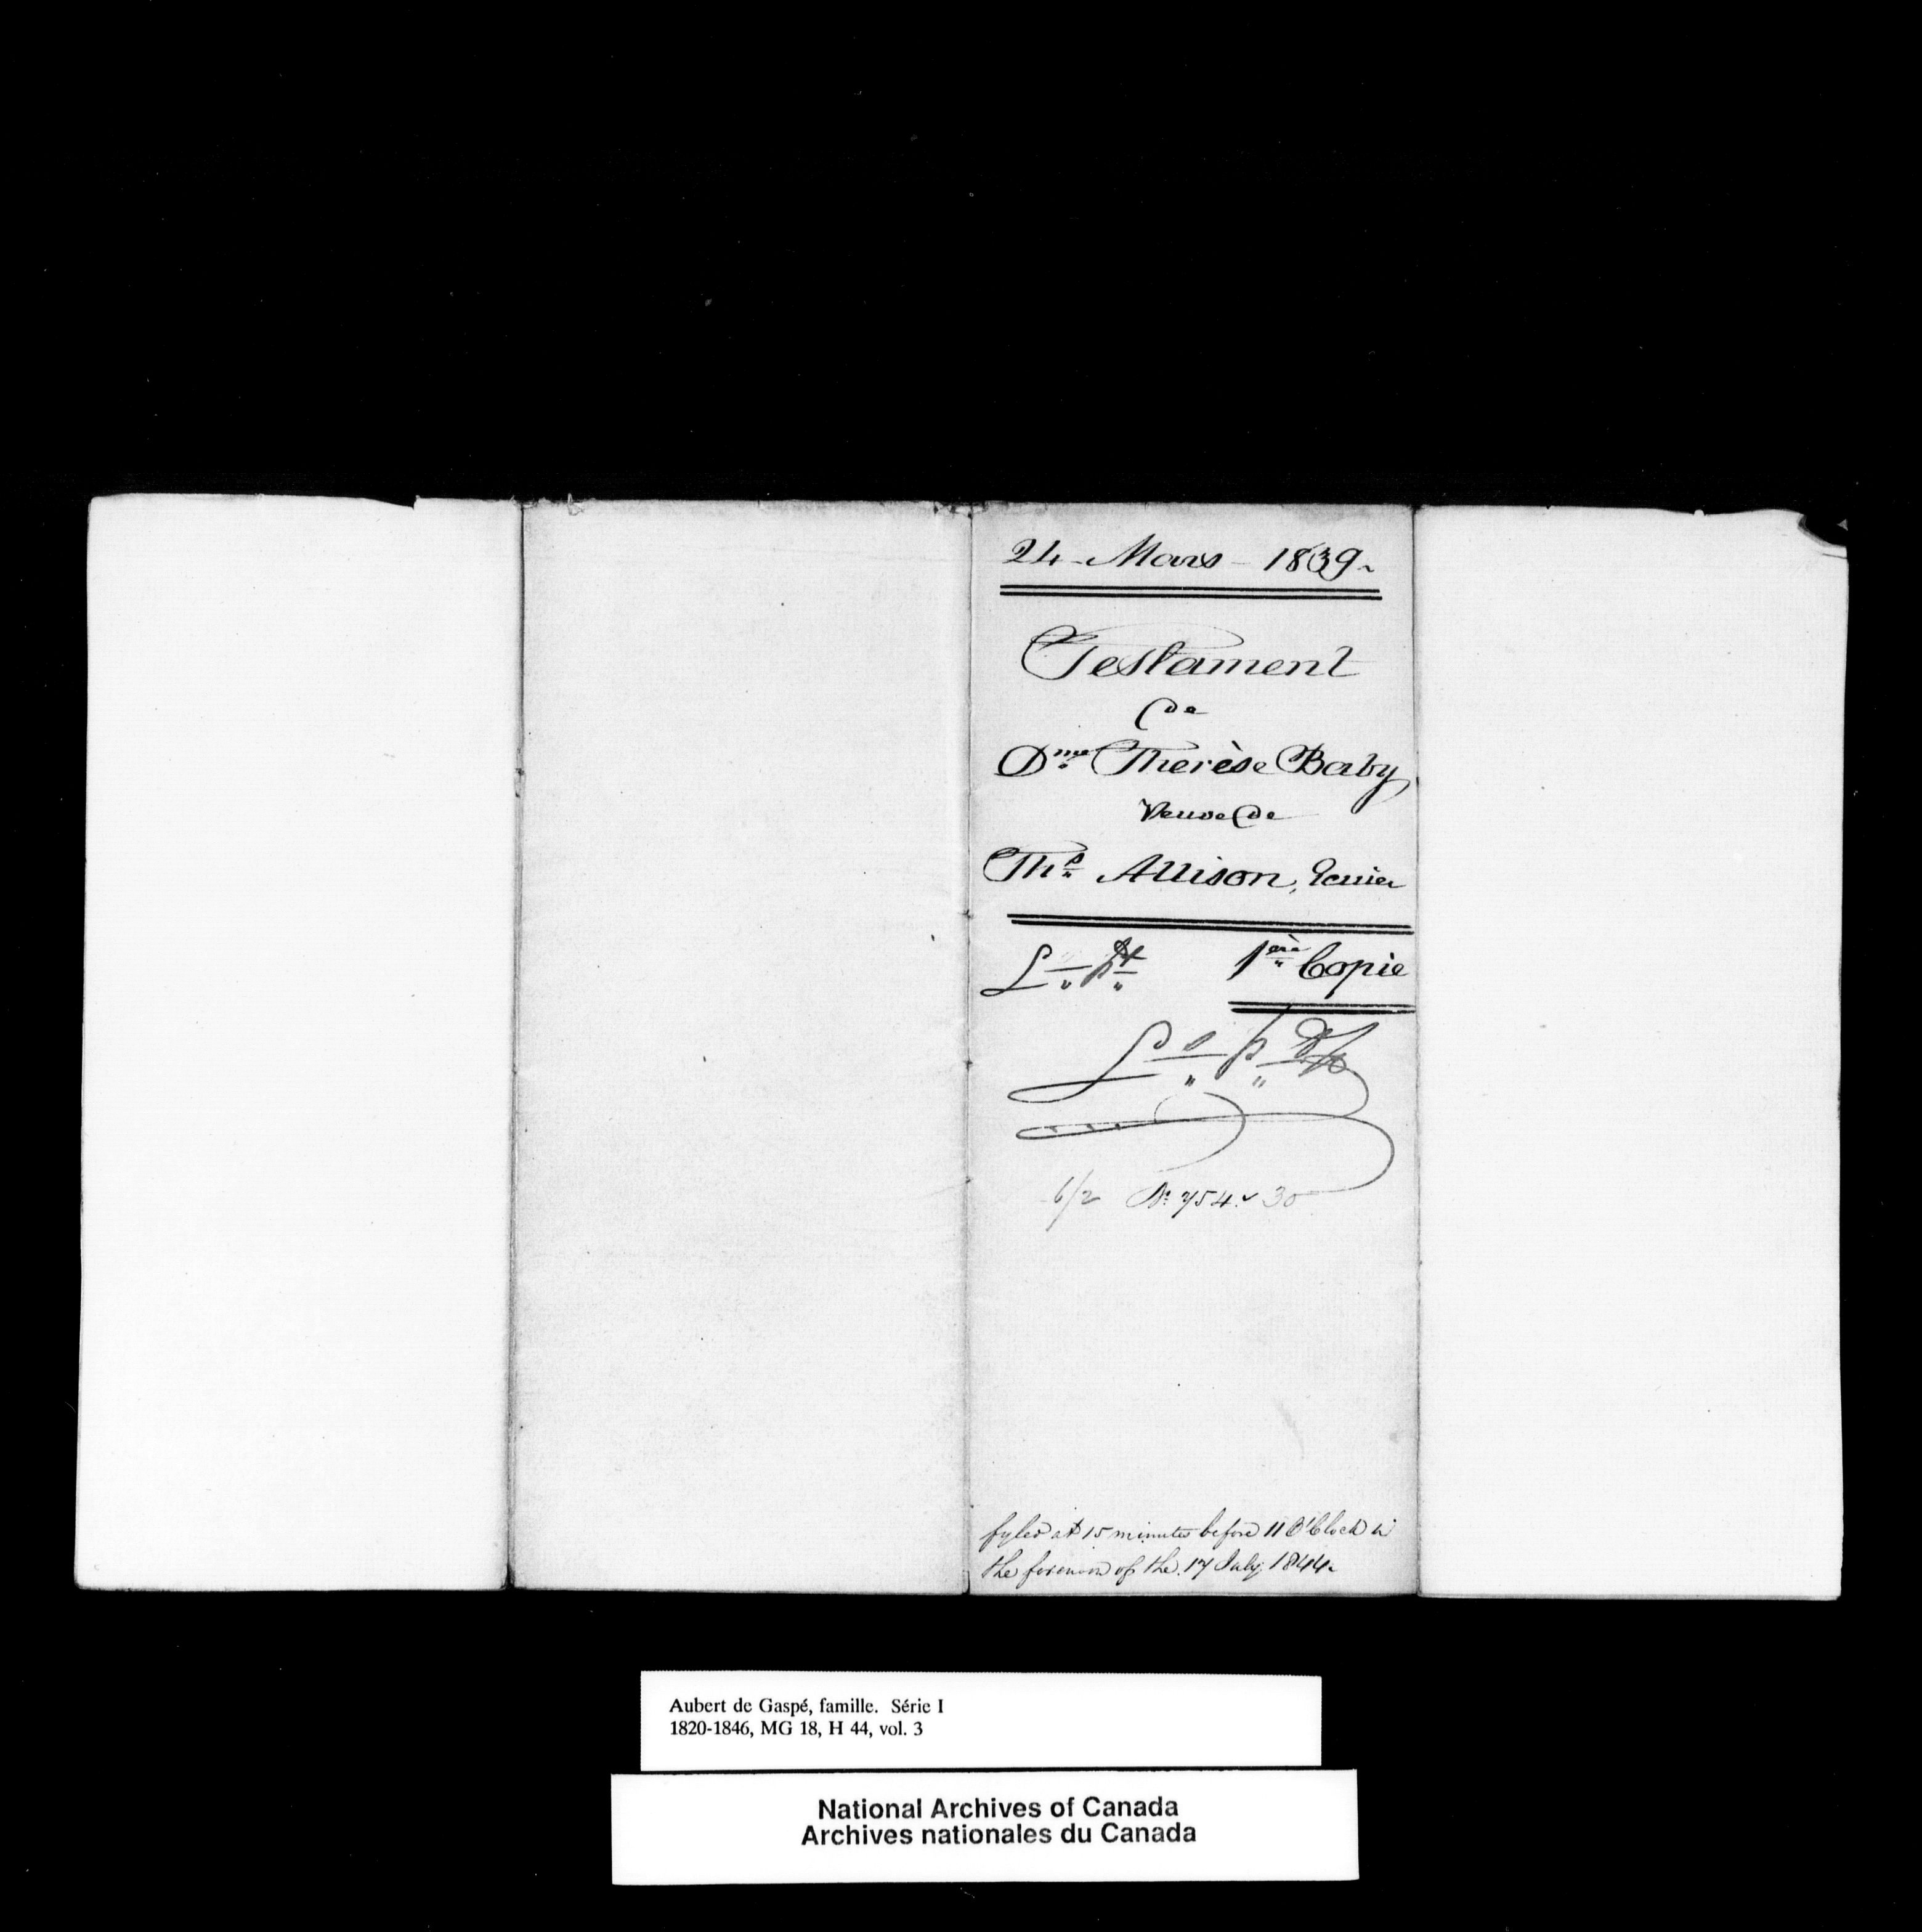 24 - Mars - 1839.
Testament
de
Dme Therèse Baby
Veuve de
Ths Allison, Ecuier
1ère Copie
6/2 No 754. 30
fyled at 15 minutes before 11 O'Clock in
the forenoon of the 17 July 1844.
Aubert de Gaspé, famille. Série I
1820-1846, MG 18, H 44, vol. 3
National Archives of Canada
Archives nationales du Canada